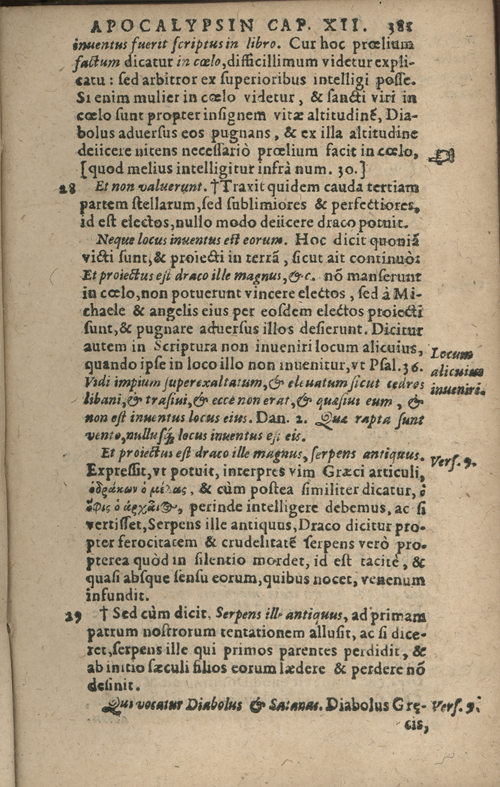 APOCALYPSIN CAP. XII. 385
inuentus fuerit scriptus in libro. Cur hoc prœlium
factum dicatur in cœlo, difficillimum videtur expli-
catu: sed arbitror ex superioribus intelligi posse.
Si enim mulier in cœlo videtur, & sancti viri in
cœlo sunt propter insignem vitæ altitudinẽ, Dia-
bolus aduersus eos pugnans, & ex illa altitudine
deiicere nitens necessariò prœlium facit in cœlo,
[quod melius intelligitur infrà num. 30.]
28 Et non valuerunt. †Traxit quidem cauda tertiam
partem stellarum, sed sublimiores & perfectiores,
id est electos, nullo modo deiicere draco potuit.
Neque locus inuentus est eorum. Hoc dicit quoniã
victi sunt, & proiecti in terrã, sicut ait continuò:
Et proiectus est draco ille magnus, &c. nõ manserunt
in cœlo, non potuerunt vincere electos, sed à Mi-
chaele & angelis eius per eosdem electos proiecti
sunt, & pugnare aduersus illos desierunt. Dicitur
autem in Scriptura non inueniri locum alicuius, Locum
quando ipse in loco illo non inuenitur, vt Psal. 36. alicuius
Vidi impium superexaltatum, & eleuatum sicut cedros inueniri.
libani, & trãsiui, & ecce non erat, & quæsiui eum, &
non est inuentus locus eius. Dan. 2. Quæ rapta sunt
vento, nullusq; locus inuentus est eis.
Et proiectus est draco ille magnus, serpens antiquus. Vers. 9.
Expressit, vt potuit, interpres vim Græci articuli,
ὁ δράκων ὁ μέγας, & cùm postea similiter dicatur, ὁ
ὄφις ὁ ἀρχαῖος, perinde intelligere debemus, ac si
vertisset, Serpens ille antiquus, Draco dicitur pro-
pter ferocitatem & crudelitatẽ serpens verò pro-
pterea quòd in silentio mordet, id est tacitè, &
quasi absque sensu eorum, quibus nocet, venenum
infundit.
29 † Sed cùm dicit. Serpens ille antiquus, ad primam
patrum nostrorum tentationem allusit, ac si dice-
ret, serpens ille qui primos parentes perdidit, &
ab initio sæculi filios eorum lædere & perdere nõ
desinit.
Qui vocatur Diabolus & Satanas. Diabolus Grę- Vers. 9.
cis,